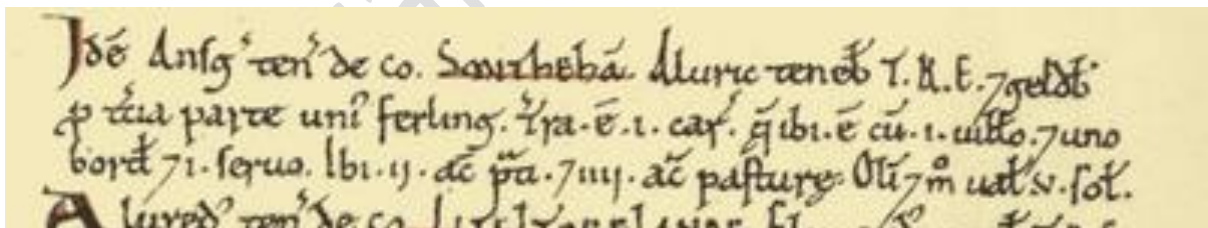 Idē Ansḡ' ten' de co. SoutHeBā. Aluric teneƀ T.R.E. ⁊ geldƀ
ꝓ t'cia parte uni' ferling. T'ra. ē. i. car'. q̄ ibi. ē cū. i. uillo. ⁊ uno
bord̄ ⁊ i. seruo. Ibi. ii. ac̄ p̄ti. ⁊ iiii. ac̄ pasturę. Oli' ⁊ m° ual̄ v. sol̄.
Alured' ten' de co.